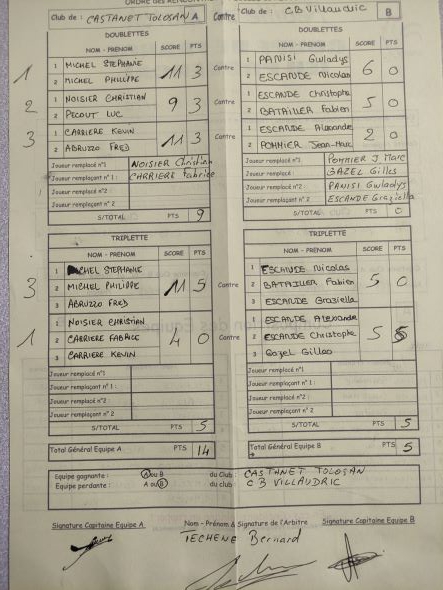 Club de : CASTANET TOLOSAN A Contre Club de : CB Villaudric B
DOUBLETTES DOUBLETTES
NOM - PRENOM SCORE PTS NOM - PRENOM SCORE PTS
1 1 MICHEL STEPHANE 11 3 Contre 1 PANISI Gwladys 6 0
2 MICHEL PHILIPPE 2 ESCANDE Nicolas
2 1 NOISIER CHRISTIAN 9 3 Contre 1 ESCANDE Christophe 5 0
2 PECOUT LUC 2 BATAILLER Fabien
3 1 CARRIERE KEVIN 11 3 Contre 1 ESCANDE Alexandre 2 0
2 ABRUZZO FRED 2 POMMIER Jean-Marc
Joueur remplacé n°1 NOISIER Christian Joueur remplacé n°1 POMMIER J Marc
Joueur remplaçant n° 1 : CARRIERE Fabrice Joueur remplaçant n°1 : GAZEL Gilles
Joueur remplacé n°2 : Joueur remplacé n°2 : PANISI Gwladys
Joueur remplaçant n° 2 Joueur remplaçant n° 2 ESCANDE Graziella
S/TOTAL PTS 9 S/TOTAL PTS 0
TRIPLETTE TRIPLETTE
NOM - PRENOM SCORE PTS NOM - PRENOM SCORE PTS
3 1 MICHEL STEPHANE 11 5 Contre 1 ESCANDE Nicolas 5 0
2 MICHEL PHILIPPE 2 BATAILLER Fabien
3 ABRUZZO FRED 3 ESCANDE Graziella
1 1 NOISIER CHRISTIAN 4 0 Contre 1 ESCANDE Alexandre 5 5
2 CARRIERE FABRICE 2 ESCANDE Christophe
3 CARRIERE KEVIN 3 Gazel Gilles
Joueur remplacé n°1 Joueur remplacé n°1
Joueur remplaçant n° 1 : Joueur remplaçant n°1 :
Joueur remplacé n°2 : Joueur remplacé n°2 :
Joueur remplaçant n° 2 Joueur remplaçant n° 2
S/TOTAL PTS 5 S/TOTAL PTS 5
Total Général Equipe A PTS 14 Total Général Equipe B PTS 5
Equipe gagnante : A ou B du Club : CASTANET TOLOSAN
Equipe perdante : A ou B du club : CB VILLAUDRIC
Signature Capitaine Equipe A Nom - Prénom & Signature de l'Arbitre Signature Capitaine Equipe B
TECHENE Bernard